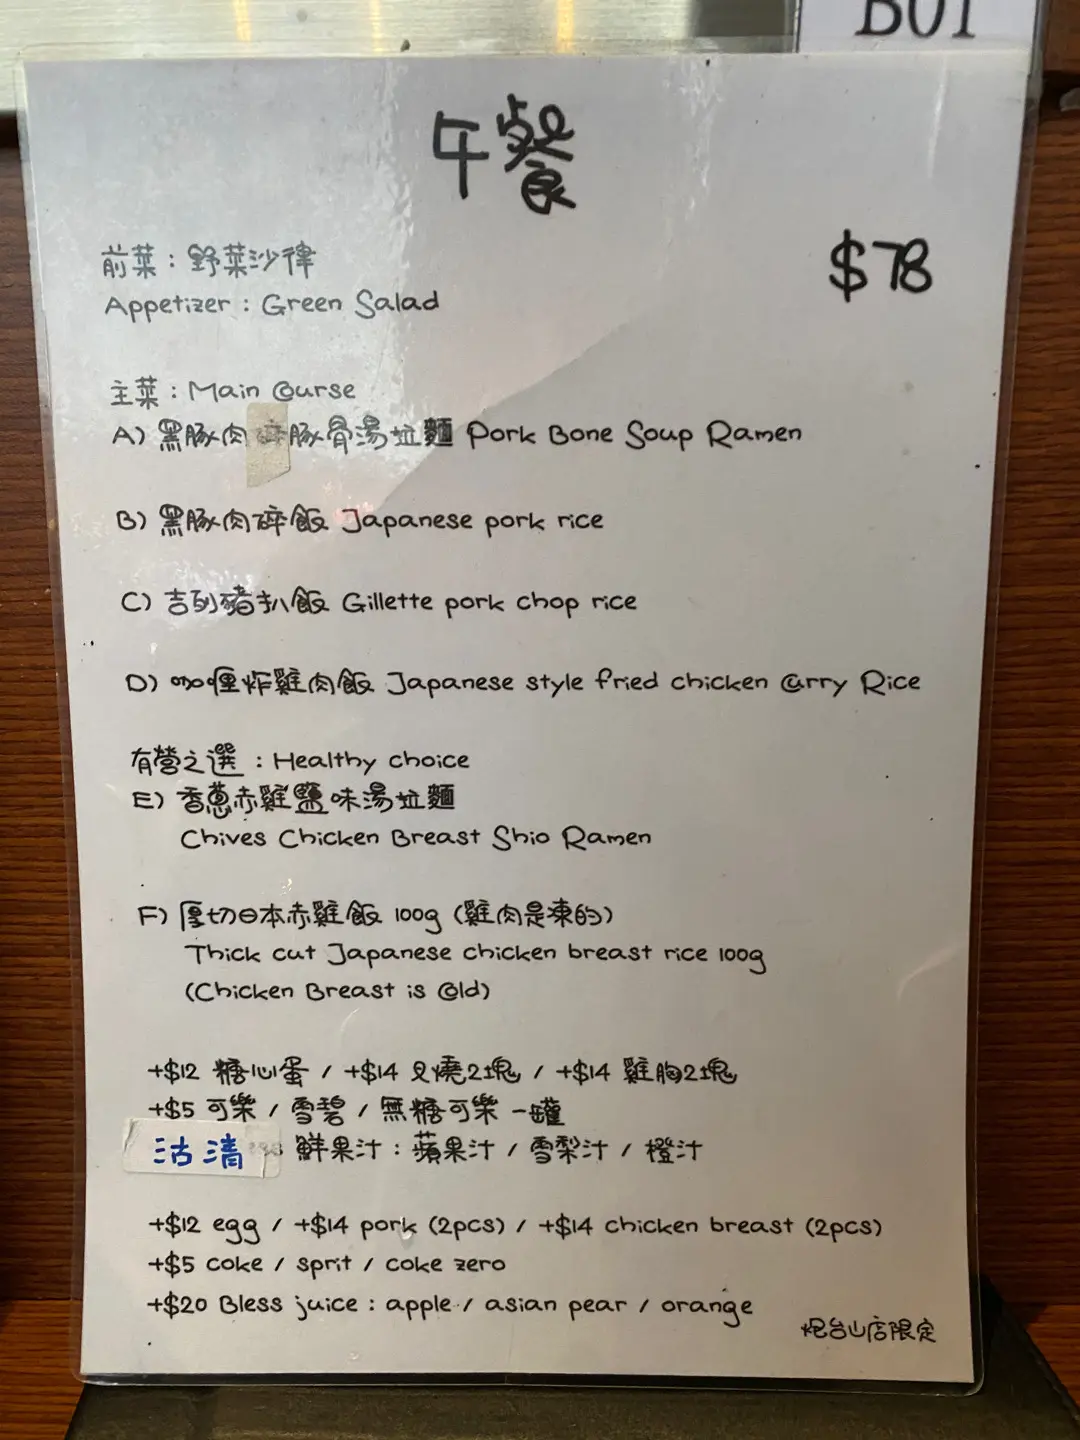 B01
午餐
$78
前菜：野菜沙律
Appetizer : Green Salad
主菜 : Main Course
A) 黑豚肉碎豚骨湯拉麵 Pork Bone Soup Ramen
B) 黑豚肉碎飯 Japanese pork rice
C) 吉列豬扒飯 Gillette pork chop rice
D) 咖喱炸雞肉飯 Japanese style fried chicken Curry Rice
有營之選 : Healthy choice
E) 香蔥赤雞鹽味湯拉麵
Chives Chicken Breast Shio Ramen
F) 厚切日本赤雞飯 100g (雞肉是凍的)
Thick cut Japanese chicken breast rice 100g
(Chicken Breast is Cold)
+$12 糖心蛋 / +$14 叉燒2塊 / +$14 雞胸2塊
+$5 可樂 / 雪碧 / 無糖可樂 一罐
沽清 鮮果汁 : 蘋果汁 / 雪梨汁 / 橙汁
+$12 egg / +$14 pork (2pcs) / +$14 chicken breast (2pcs)
+$5 coke / sprit / coke zero
+$20 Bless juice : apple / asian pear / orange
炮台山店限定